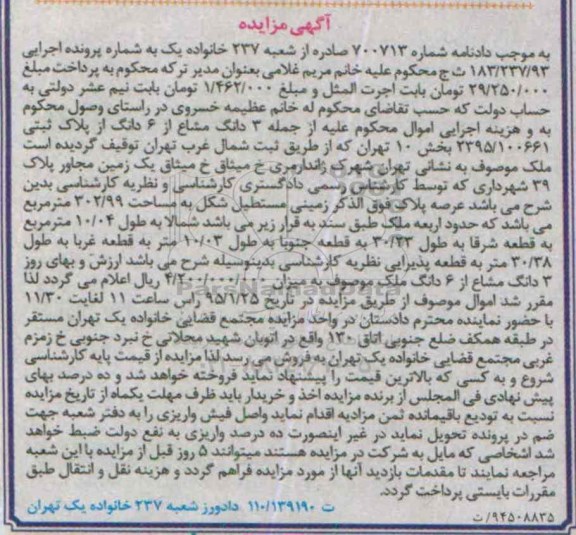 آگهی مزایده
به موجب دادنامه شماره ۷۰۰۷۱۳ صادره از شعبه ۲۳۷ خانواده یک به شماره پرونده اجرایی
۱۸۳/۲۳۷/۹۳ ث ج محکوم علیه خانم مریم غلامی بعنوان مدیر ترکه محکوم به پرداخت مبلغ
۲۹/۲۵۰/۰۰۰ تومان بابت اجرت المثل و مبلغ ۱/۴۶۲/۰۰۰ تومان بابت نیم عشر دولتی به
حساب دولت که حسب تقاضای محکوم له خانم عظیمه خسروی در راستای وصول محکوم
به و هزینه اجرایی اموال محکوم علیه از جمله ۳ دانگ مشاع از ۶ دانگ از پلاک ثبتی
۲۳۹۵/۱۰۰۶۶۱ بخش ۱۰ تهران که از طریق ثبت شمال غرب تهران توقیف گردیده است
ملک موصوف به نشانی تهران شهرک ژاندارمری خ میثاق خ میثاق یک زمین مجاور پلاک
۳۹ شهرداری که توسط کارشناس رسمی دادگستری کارشناسی و نظریه کارشناسی بدین
شرح می باشد عرصه پلاک فوق الذکر زمینی مستطیل شکل به مساحت ۳۰۲/۹۹ مترمربع
می باشد که حدود اربعه ملک طبق سند به قرار زیر می باشد شمالا به طول ۱۰/۰۴ مترمربع
به قطعه شرقا به طول ۳۰/۳۳ به قطعه جنوبا به طول ۱۰/۰۳ متر به قطعه غربا به طول
۳۰/۳۸ متر به قطعه پذیرایی نظریه کارشناسی بدینوسیله شرح می باشد ارزش و بهای روز
۳ دانگ مشاع از ۶ دانگ ملک موصوف به میزان ریال اعلام می گردد لذا
مقرر شد اموال موصوف از طریق مزایده در تاریخ ۹۵/۱/۲۵ راس ساعت ۱۱ لغایت ۱۱/۳۰
با حضور نماینده محترم دادستان در واحد مزایده مجتمع قضایی خانواده یک تهران مستقر
در طبقه همکف ضلع جنوبی اتاق ۱۳۰ واقع در اتوبان شهید محلاتی خ نبرد جنوبی خ زمزم
غربی مجتمع قضایی خانواده یک تهران به فروش می رسد لذا مزایده از قیمت پایه کارشناسی
شروع و به کسی که بالاترین قیمت را پیشنهاد نماید فروخته خواهد شد و ده درصد بهای
پیش نهادی فی المجلس از برنده مزایده اخذ و خریدار باید ظرف مهلت یکماه از تاریخ مزایده
نسبت به تودیع باقیمانده ثمن مزادبه اقدام نماید واصل فیش واریزی را به دفتر شعبه جهت
ضم در پرونده تحویل نماید در غیر اینصورت ده درصد واریزی به نفع دولت ضبط خواهد
شد اشخاصی که مایل به شرکت در مزایده هستند میتوانند ۵ روز قبل از مزایده با این شعبه
مراجعه نمایند تا مقدمات بازدید آنها از مورد مزایده فراهم گردد و هزینه نقل و انتقال طبق
مقررات بایستی پرداخت گردد.
ت ۱۱۰/۱۳۹۱۹۰ دادورز شعبه ۲۳۷ خانواده یک تهران
۹۴۵۰۸۸۳۵/ث